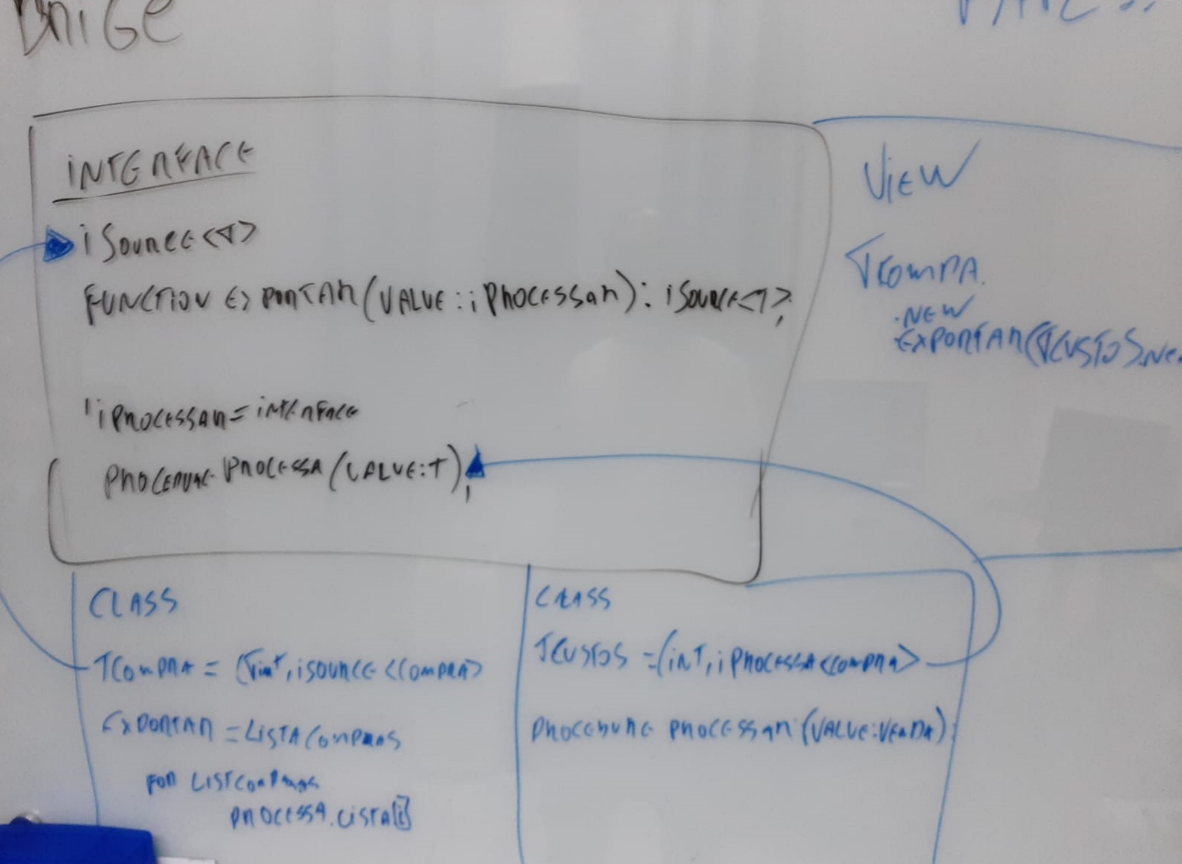 INTERFACE
iSource<T>
FUNCTION EXPORTAR(VALUE: iPROCESSAR): iSource<T>;
iPROCESSAR = INTERFACE
PROCEDURE PROCESSA(VALUE:T);
VIEW
TCOMPRA
.NEW
.EXPORTAR(TCUSTOS.NE
CLASS
TCOMPRA = (TinT, iSOURCE<COMPRA>
EXPORTAR = LISTACOMPRAS
FOR LISTCOMPRAS
PROCESSA.LISTA[i]
CLASS
TCUSTOS = (INT, iPROCESSA<COMPRA>
PROCEDURE PROCESSAR(VALUE:VENDA);